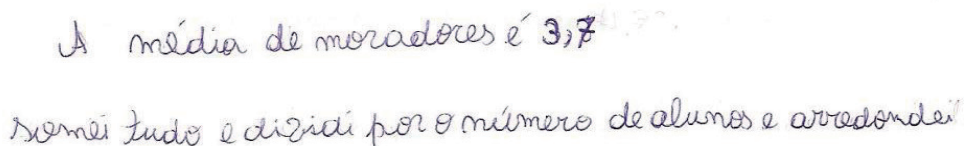 A média de moradores é 3,7
somei tudo e dividi por o número de alunos e arredondei